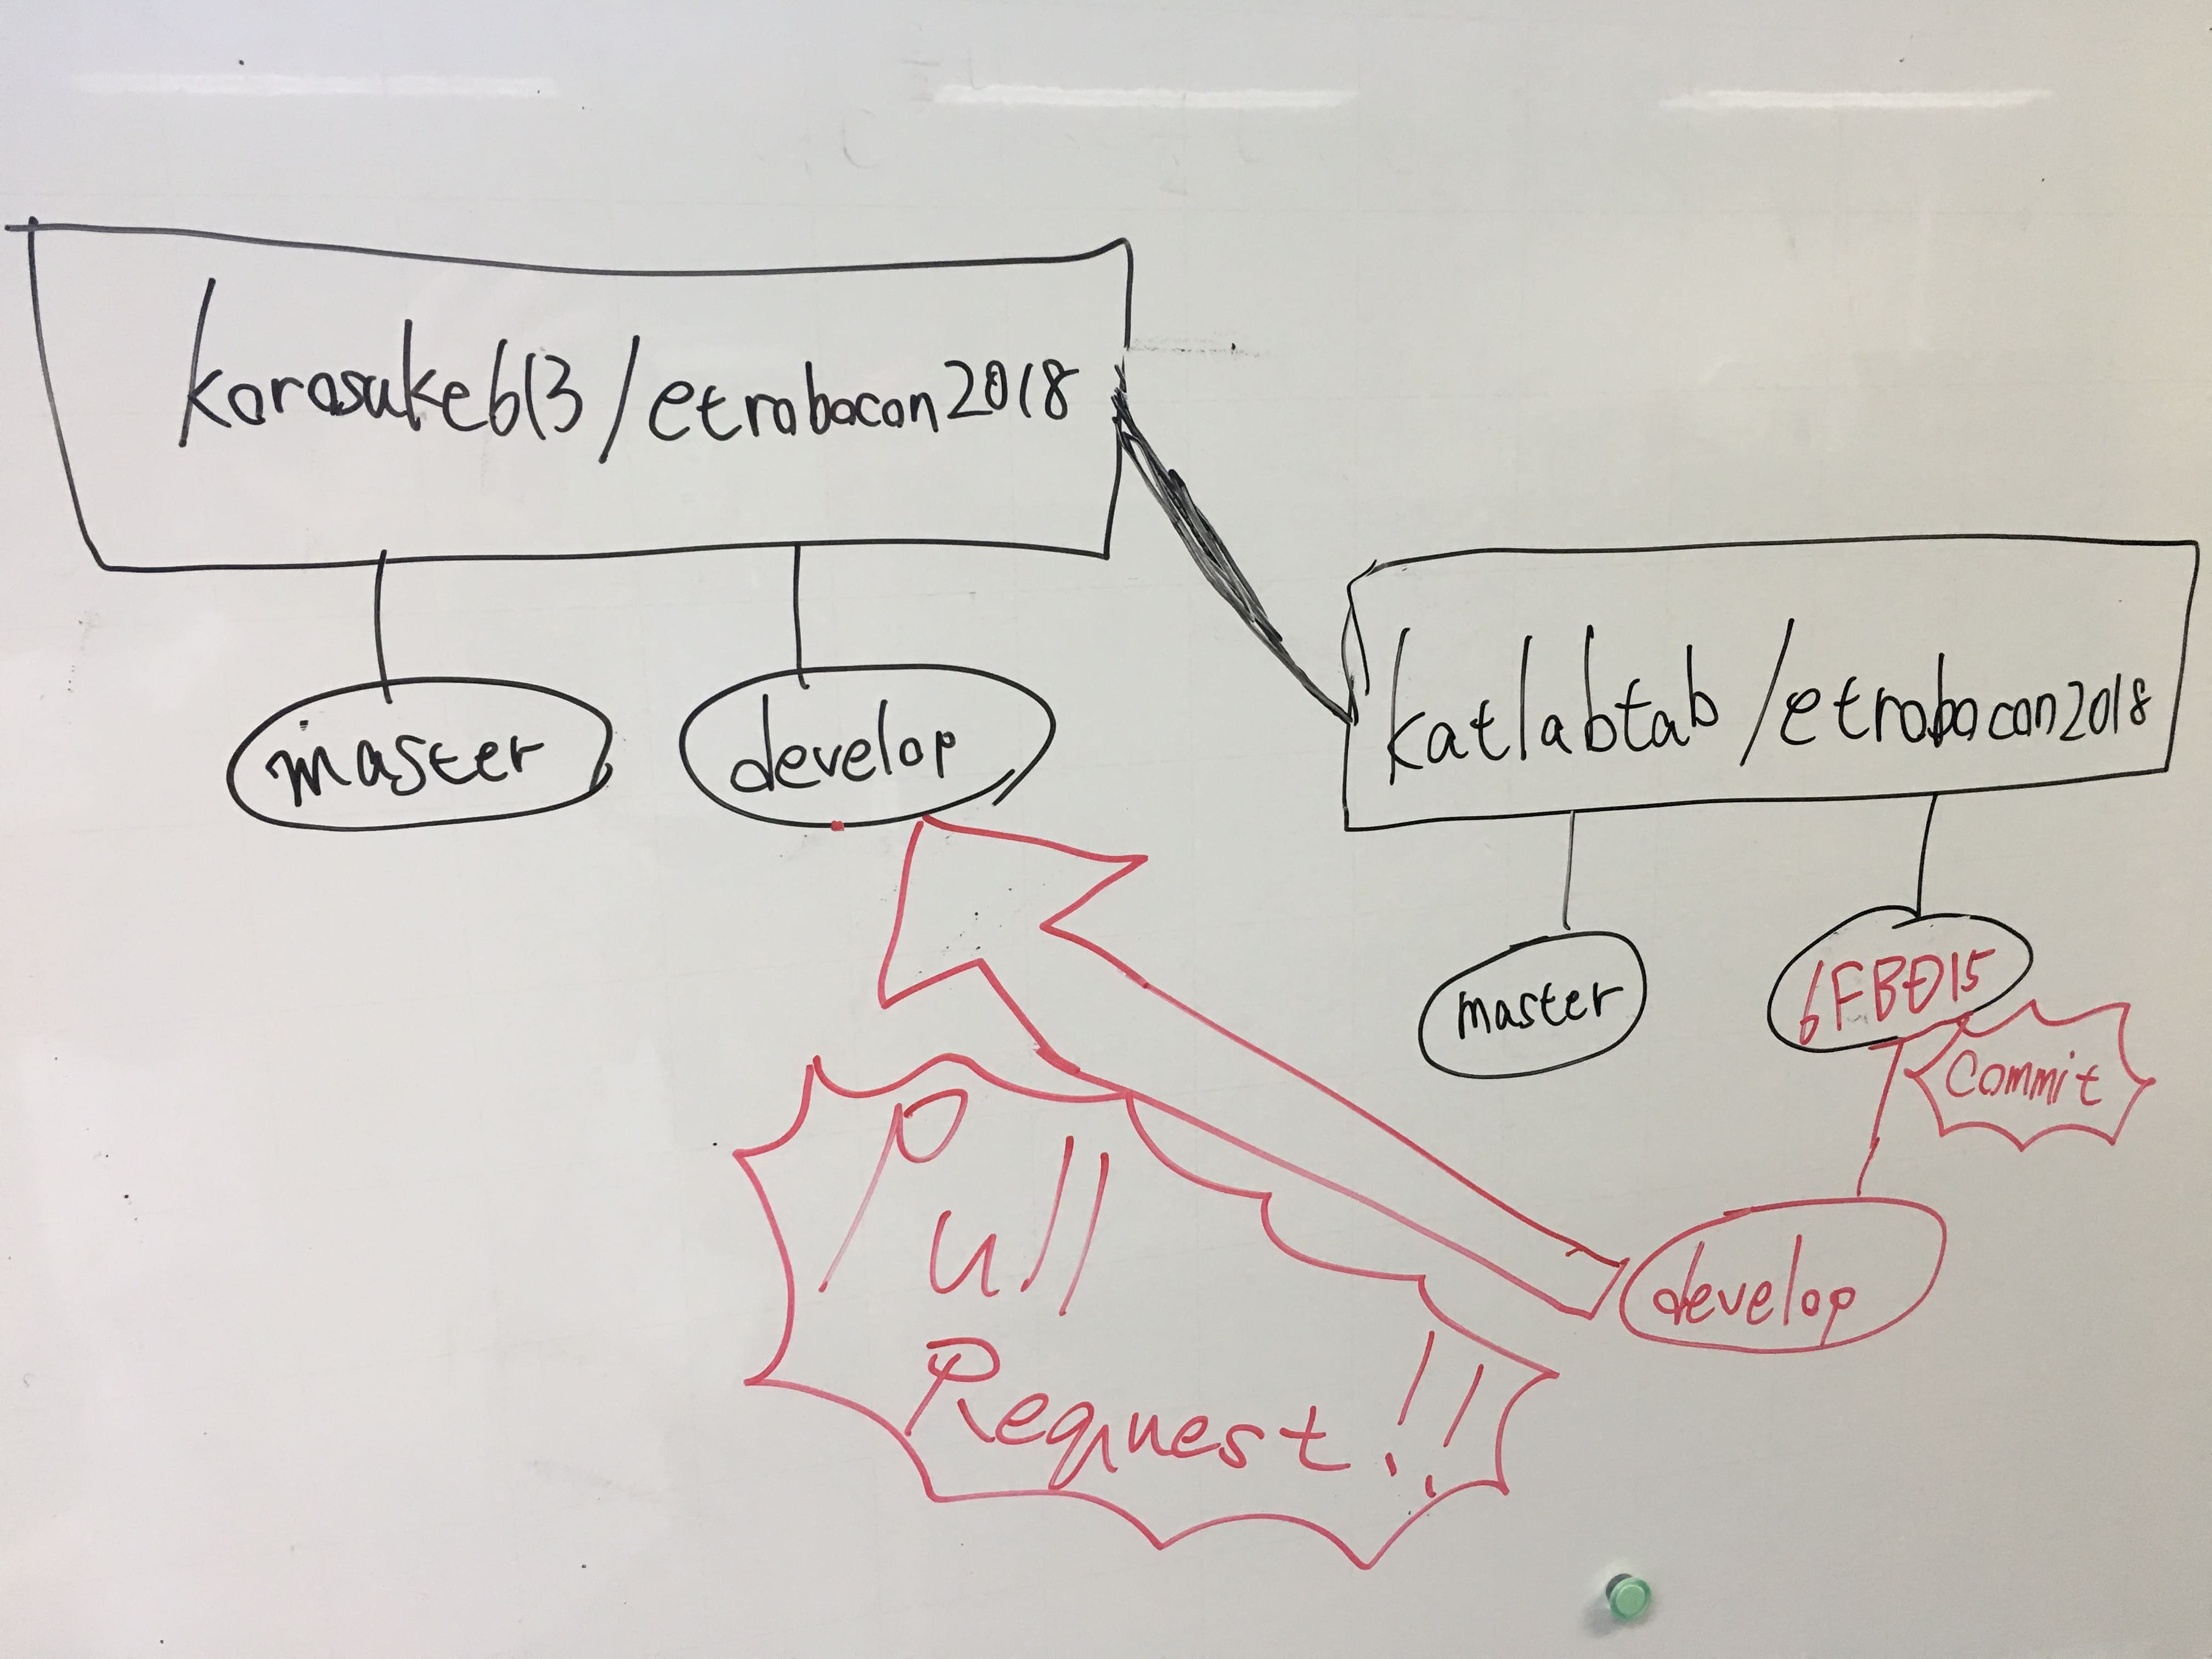 korosuke613/etrobocon2018
master
develop
katlabtab/etrobocon2018
master
6FBD15
Commit
develop
Pull
Request!!